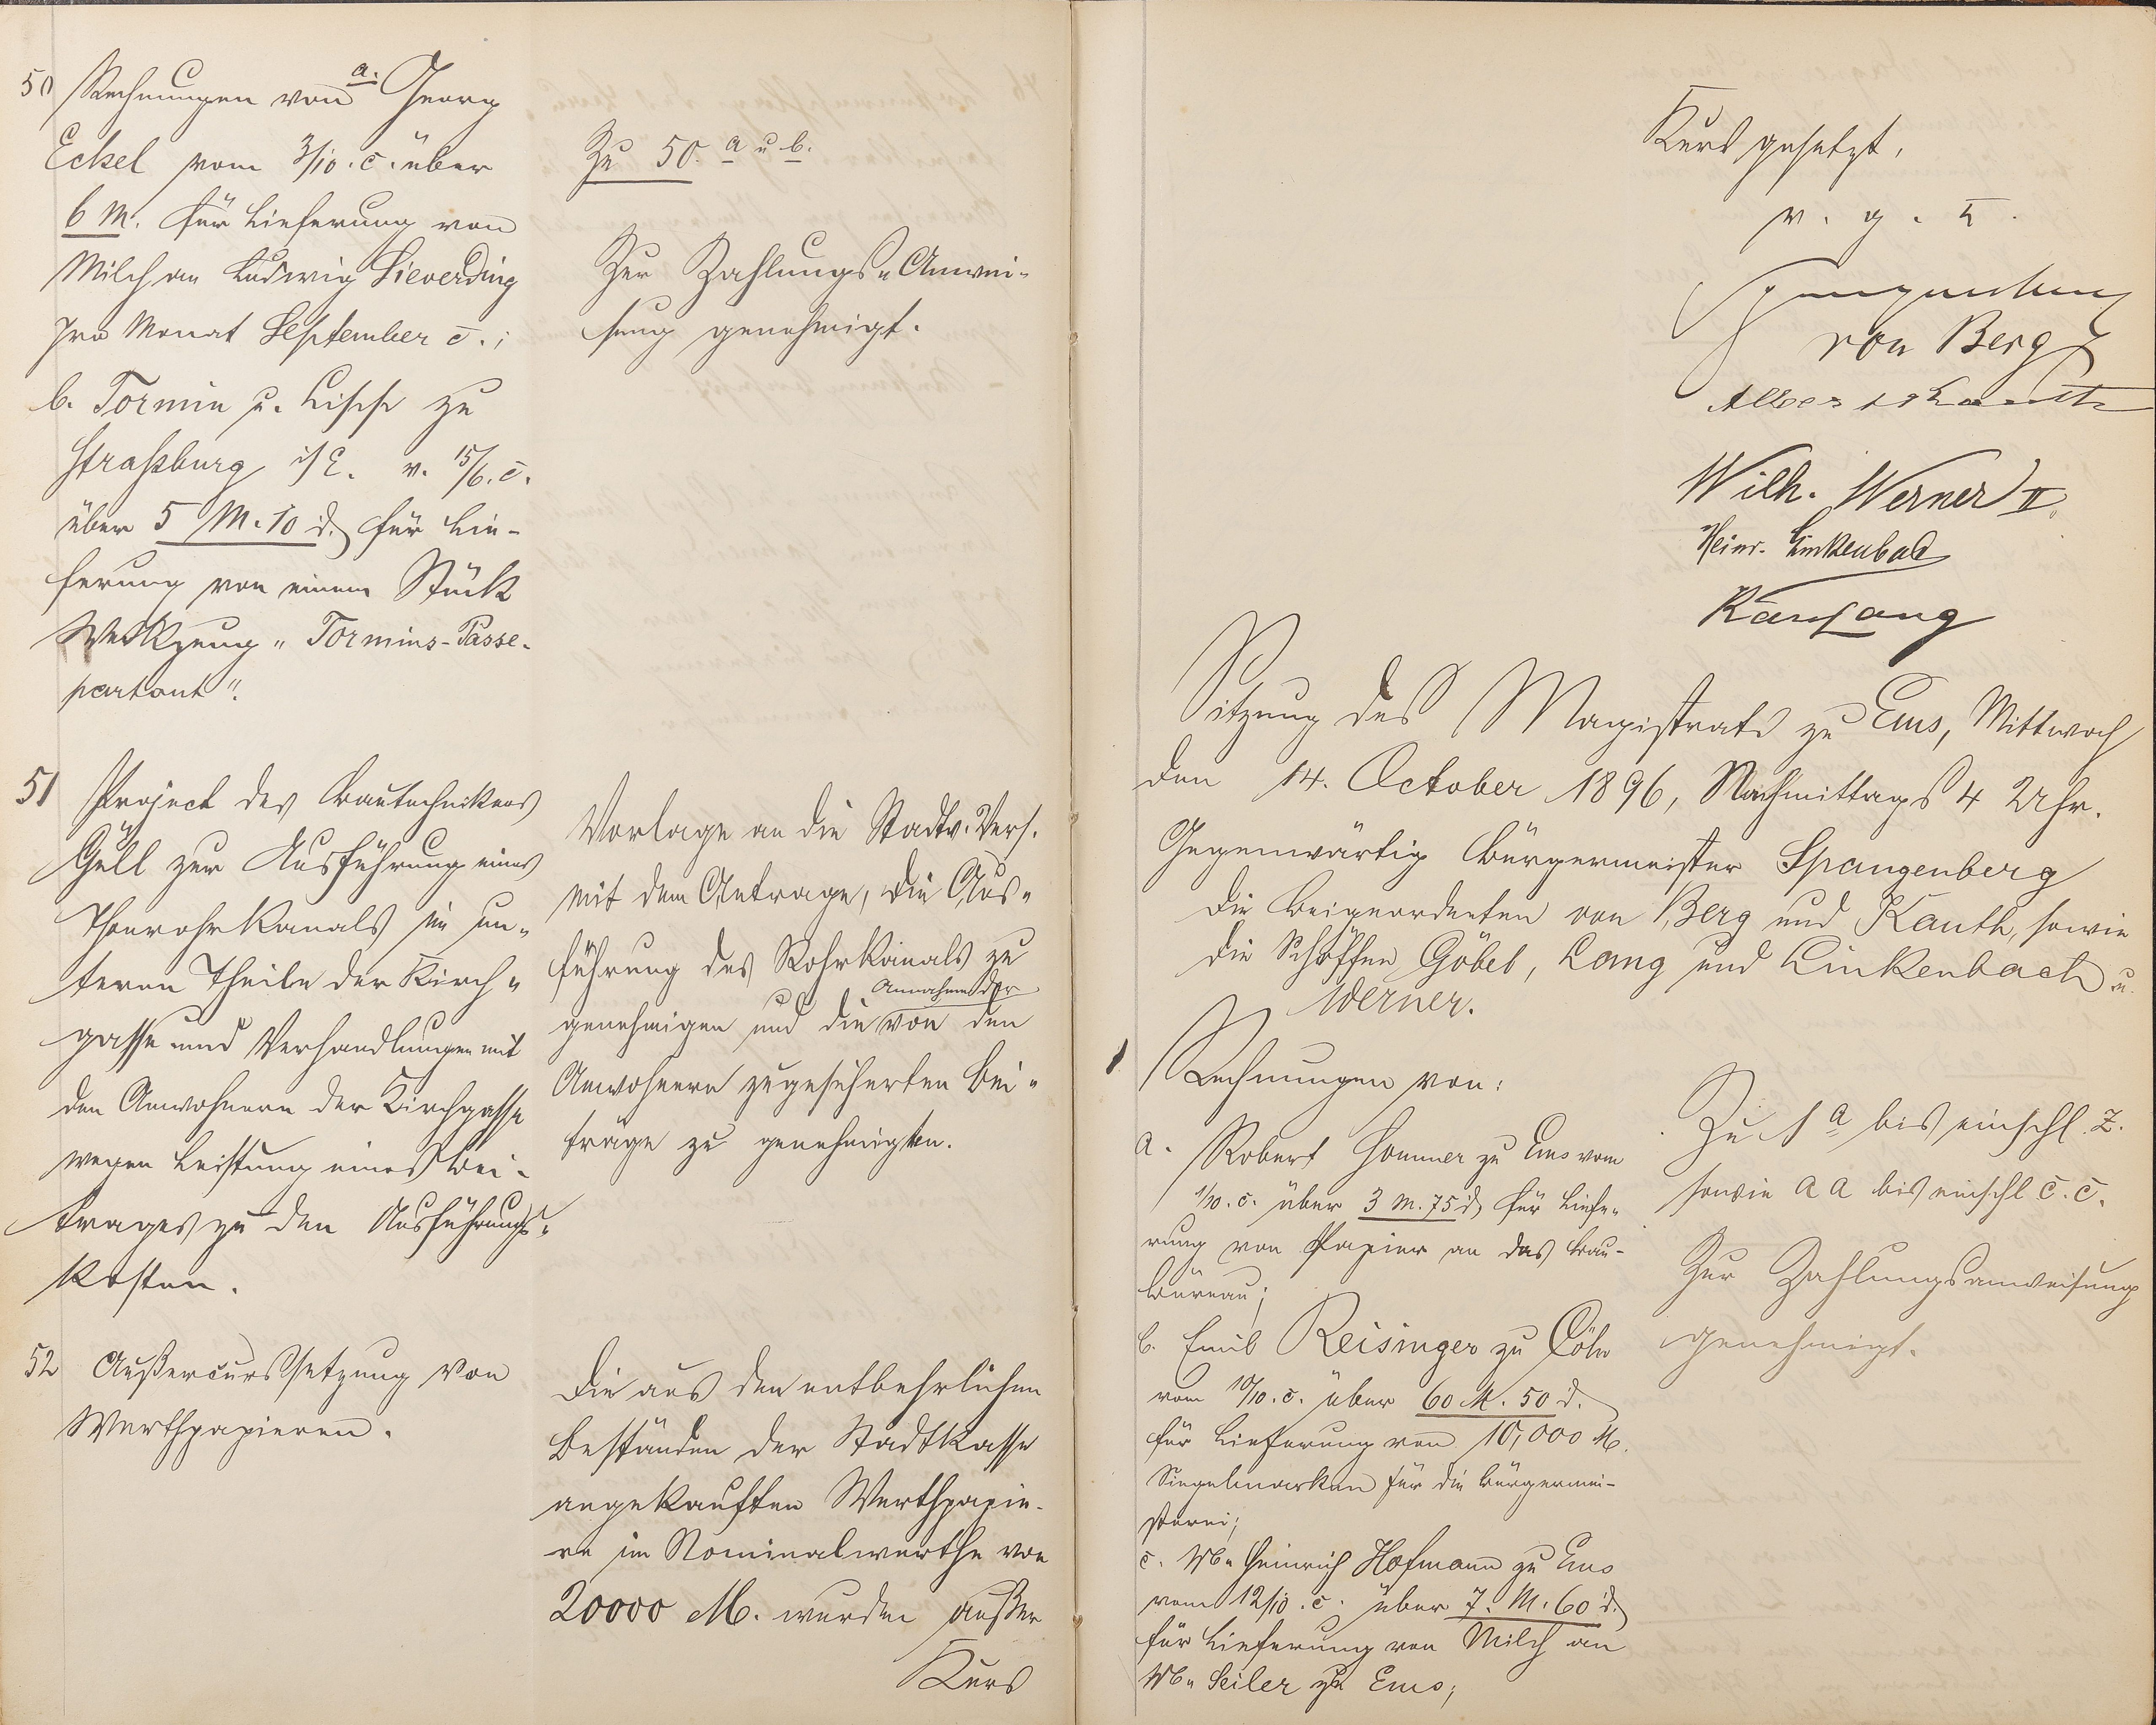 50 Rechnungen von a. Georg
Eckel vom 3/10. c. über
6 M. für Lieferung von
Milch an Ludwig Sieverding
pro Monat September c.;
b. Tormin u. Lische zu
Straßburg i/E. v. 15/6. c.
über 5 M. 10 d. für Lie-
ferung von einem Stück
Werkzeug „Tormins-Passe-
partout".
Zu 50. a u b.
Zur Zahlungs-Anwei-
sung genehmigt.
51 Project des Bautechnikers
Güll zur Ausführung eines
Thonrohrkanals im un-
teren Theile der Kirch-
gasse und Verhandlungen mit
den Anwohnern der Kirchgasse
wegen Leistung eines Bei-
trages zu den Ausführungs-
kosten.
Vorlage an die Stadtv. Vers.
mit dem Antrage, die Aus-
führung des Rohrkanals zu
Annahme der
genehmigen und die von den
Anwohnern zugesicherten Bei-
träge zu genehmigten.
52 Außercurssetzung von
Werthpapieren.
Die aus den entbehrlichen
Beständen der Stadtkasse
angekauften Werthpapie-
re im Nominalwerthe von
20000 M. wurden außer
Kurs
Kurs gesetzt.
v. g. u.
Spangenberg
von Berg
Albert Kauth
Wilh. Werner II.
Heinr. Linkenbach
Karl Lang
Sitzung des Magistrats zu Ems, Mittwoch
den 14. October 1896, Nachmittags 4 Uhr.
Gegenwärtig Bürgermeister Spangenberg
die Beigeordneten von Berg und Kauth, sowie
die Schöffen Göbel, Lang und Linkenbach u.
Werner.
1 Rechnungen von:
a. Robert Sommer zu Ems vom
1/10. c. über 3 M. 75 d. für Liefe-
rung von Papier an das Bau-
büreau;
b. Emil Reisinger zu Cöln
vom 10/10. c. über 60 M. 50 d.
für Lieferung von 10,000 St.
Siegelmarken für die Bürgermei-
sterei;
c. Ww. Heinrich Hofmann zu Ems
vom 12/10. c. über 7. M. 60 d.
für Lieferung von Milch an
Ww. Seiler zu Ems;
Zu 1 a bis einschl. z.
sowie a a bis einschl c. c.
Zur Zahlungsanweisung
genehmigt.